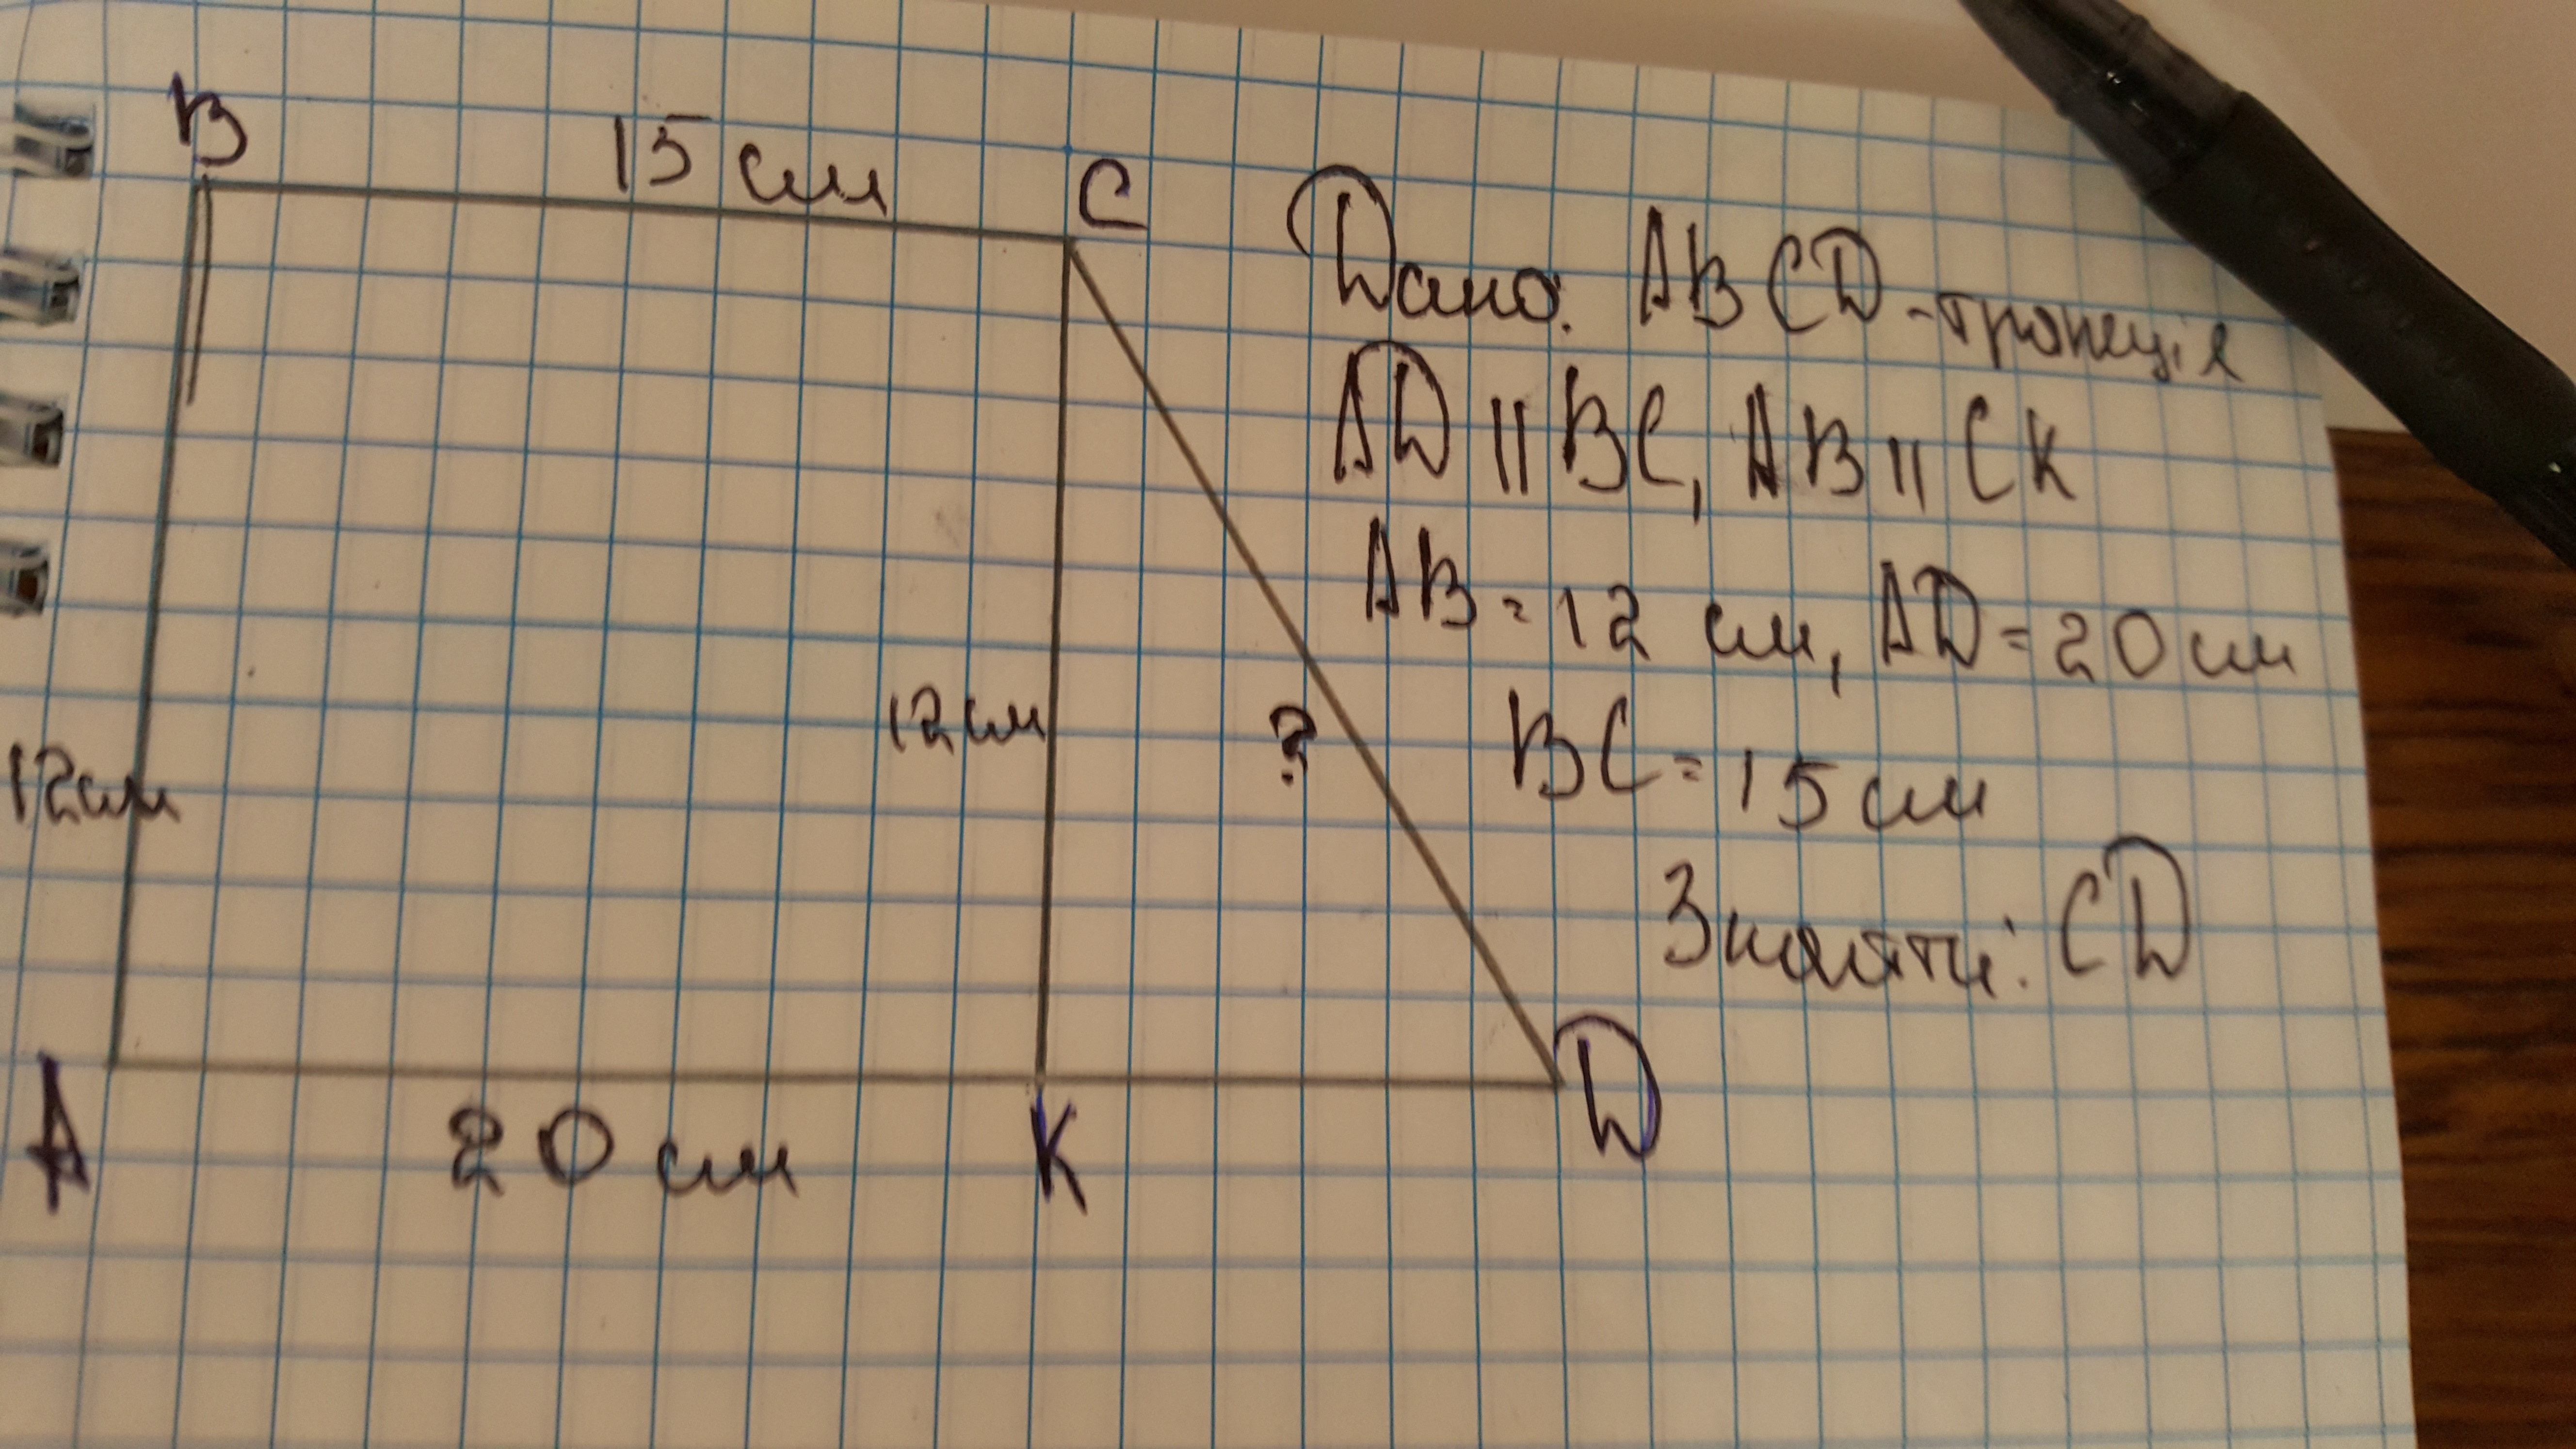 B
15 см
C
Дано: ABCD - трапеція
AD || BC, AB || CK
AB = 12 см, AD = 20 см
12 см
?
BC = 15 см
12 см
Знайти: CD
A
20 см
K
D